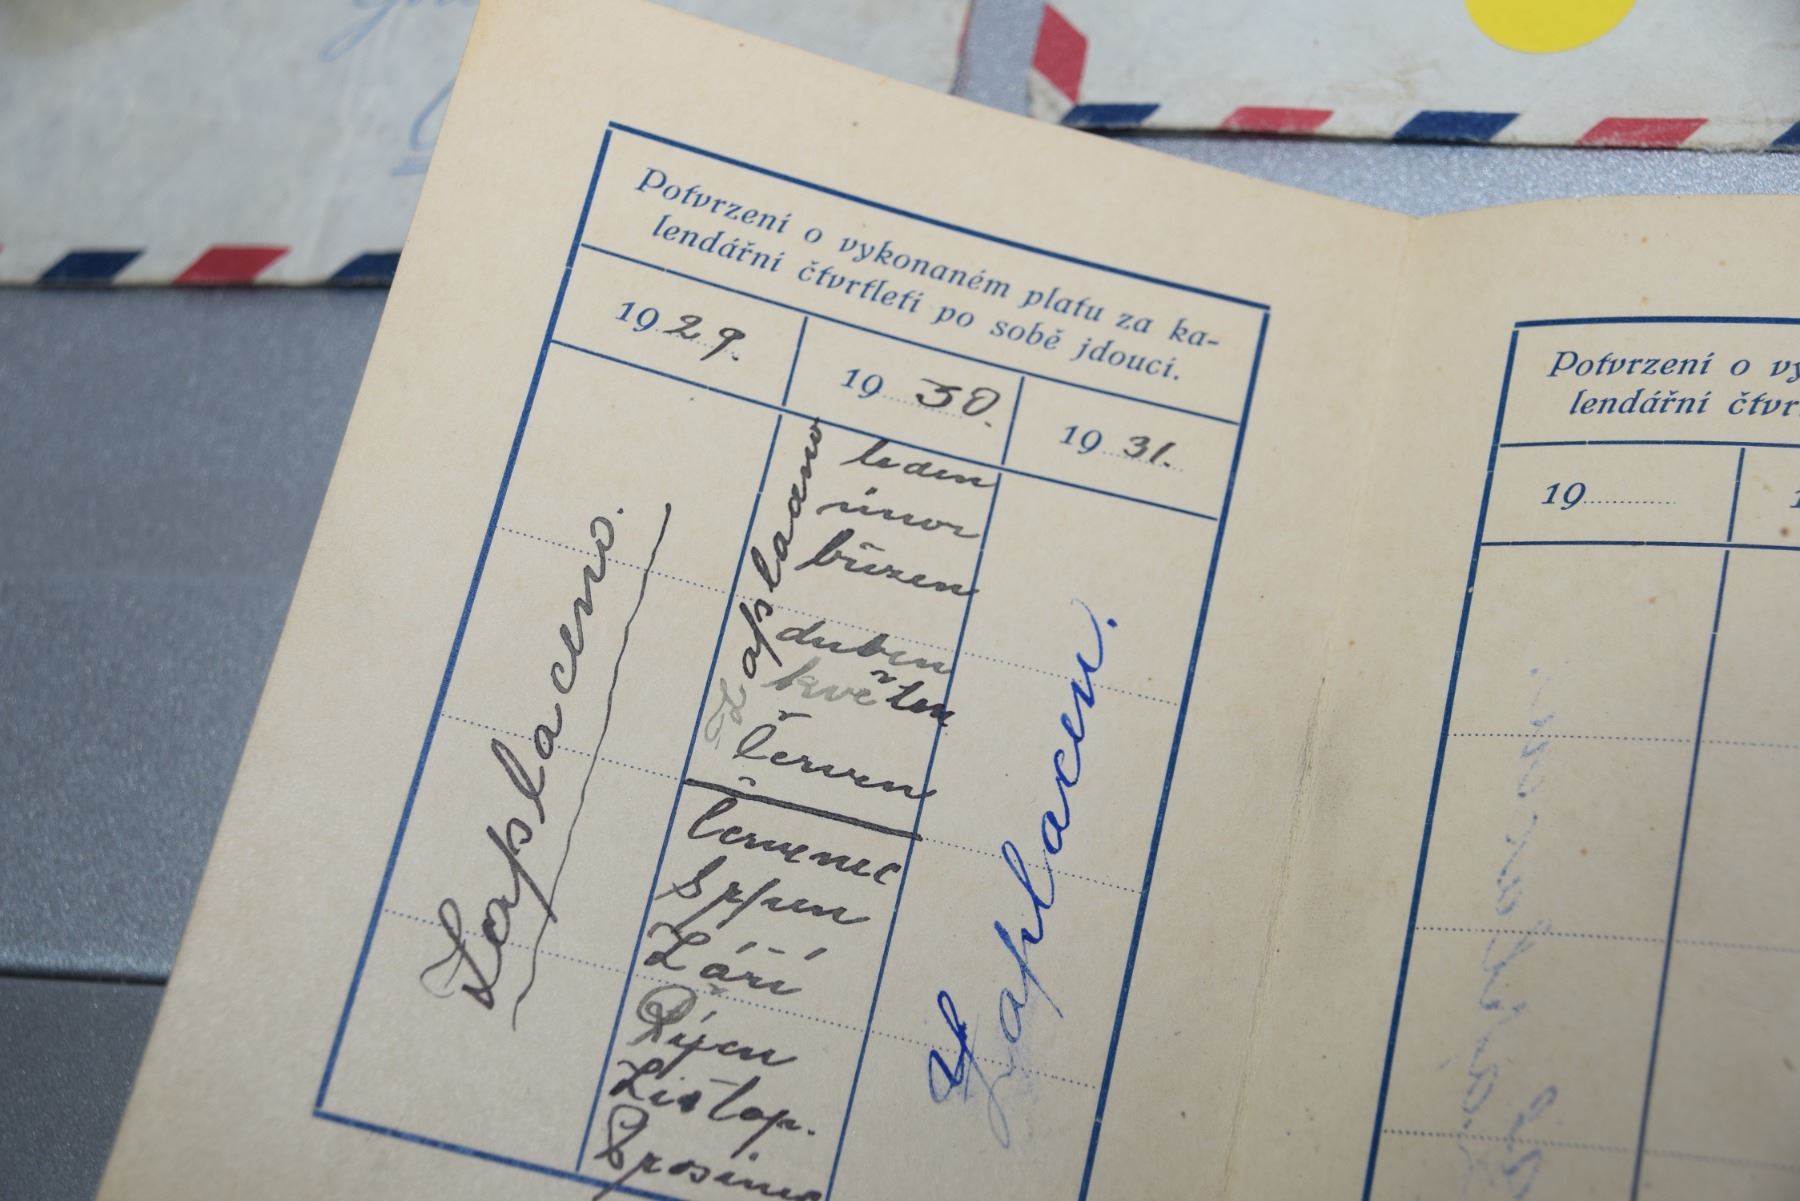 Potvrzení o vykonaném platu za ka-
lendářní čtvrtletí po sobě jdoucí.
1929.
1930.
1931.
Zaplaceno.
Zaplaceno
leden
únor
březen
duben
květen
červen
červenec
Srpen
Září
Říjen
Listop.
Prosinec
Zaplacen.
Potvrzení o vy
lendářní čtvr
19
1